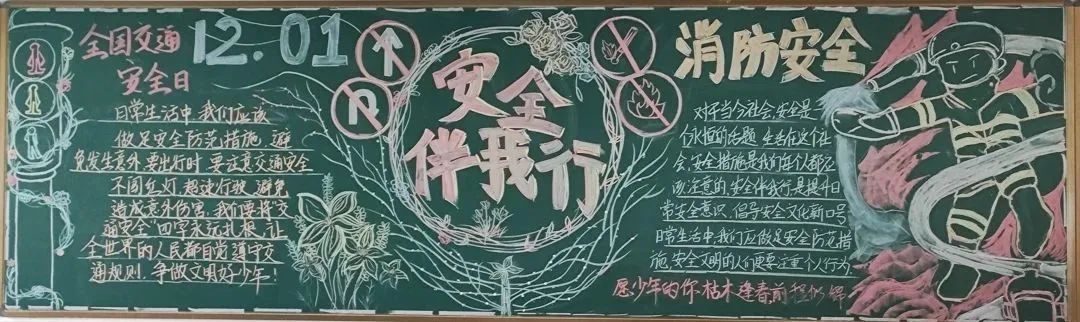 全国交通
安全日
12.01
日常生活中,我们应该
做足安全防范措施,避
免发生意外,要出行时,要注意交通安全
不闯红灯,超速行驶,避免
造成意外伤害,我们要将"交
通安全"四字永远扎根,让
全世界的人民都自觉遵守交
通规则,争做文明好少年!
安全
伴我行
消防安全
对于当今社会,安全是
个永恒的话题,生活在这个社
会,安全措施是我们每个人都应
该注意的,安全伴我行是提升日
常安全意识,倡导安全文化新口号
日常生活中,我们应做足安全防范措
施,安全文明的人们更要注重个人行为
愿少年的你枯木逢春前程似锦